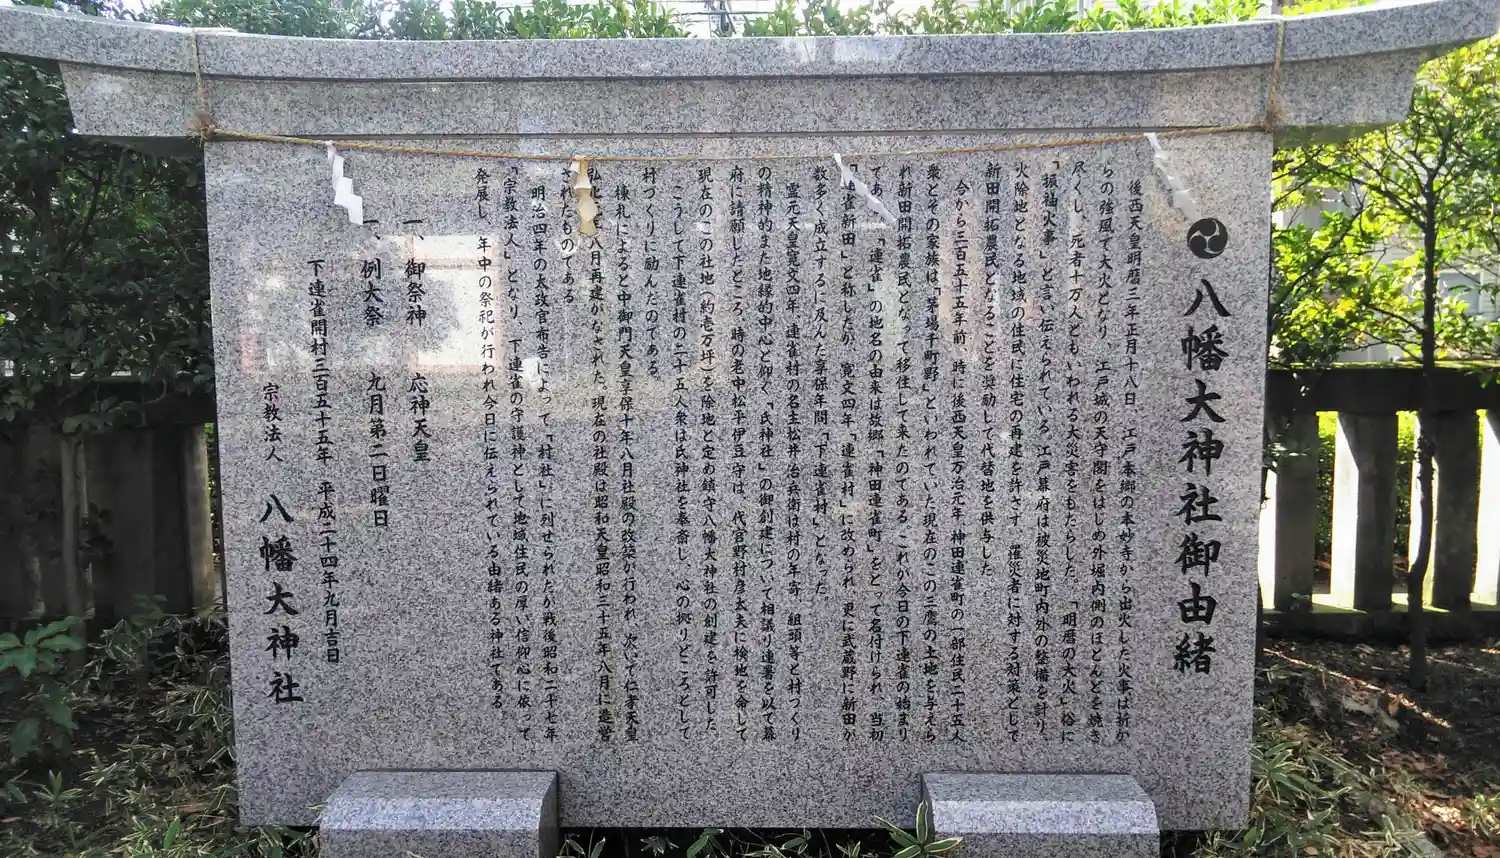 八幡大神社御由緒
後西天皇明暦三年正月十八日、江戸本郷の本妙寺から出火した火事は折か
らの強風で大火となり、江戸城の天守閣をはじめ外堀内側のほとんどを焼き
尽くし、死者十万人ともいわれる大災害をもたらした。「明暦の大火」俗に
「振袖火事」と言い伝えられている。江戸幕府は被災地町内外の整備を計り、
火除地となる地域の住民に住宅の再建を許さず、罹災者に対する対策として
新田開拓農民となることを奨励して代替地を供与した。
今から三百五十五年前、時に後西天皇万治元年、神田連雀町の一部住民二十五人
衆とその家族は「茅場千町野」といわれていた現在のこの三鷹の土地を与えら
れ新田開拓農民となって移住して来たのである。これが今日の下連雀の始まり
である。「連雀」の地名の由来は故郷「神田連雀町」をとって名付けられ、当初
「連雀新田」と称したが、寛文四年「連雀村」に改められ、更に武蔵野に新田が
数多く成立するに及んだ享保年間「下連雀村」となった。
霊元天皇寛文四年、連雀村の名主松井治兵衛は村の年寄、組頭等と村づくり
の精神的また地縁的中心と仰ぐ「氏神社」の御創建について相議り連署を以て幕
府に請願したところ、時の老中松平伊豆守は、代官野村彦太夫に検地を命して
現在のこの社地（約壱万坪）を除地と定め鎮守八幡大神社の創建を許可した。
こうして下連雀村の二十五人衆は氏神社を奉斎し、心の拠りどころとして
村づくりに励んだのである。
棟札によると中御門天皇享保十年八月社殿の改築が行われ、次いで仁孝天皇
弘化 八月再建がなされた。現在の社殿は昭和天皇昭和三十五年八月に造営
されたものである。
明治四年の太政官布告によって「村社」に列せられたが戦後昭和二十七年
「宗教法人」となり、下連雀の守護神として地域住民の厚い信仰心に依って
発展し、年中の祭祀が行われ今日に伝えられている由緒ある神社である。
一、御祭神　応神天皇
一、例大祭　九月第二日曜日
下連雀開村三百五十五年　平成二十四年九月吉日
宗教法人　八幡大神社